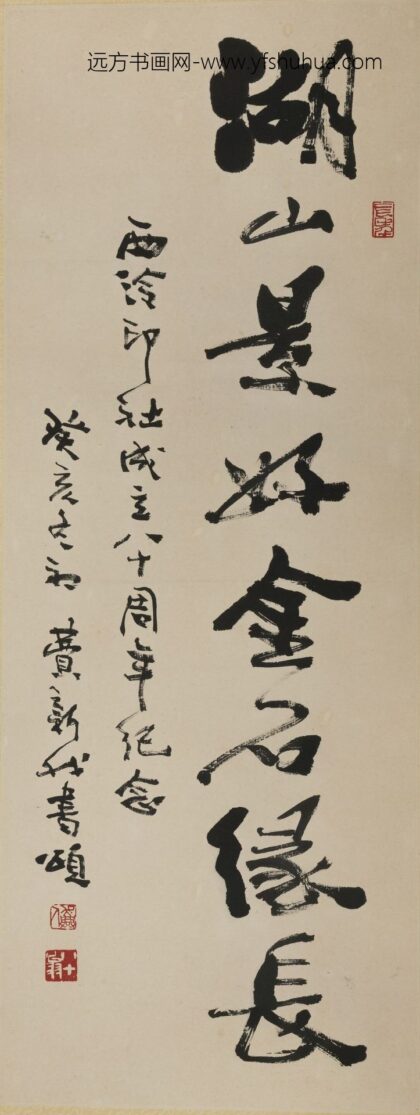 远方书画网-www.yfshuhua.com
湖山景好金石缘長
西泠印社成立八十周年纪念
癸亥冬初 黄新我書頌